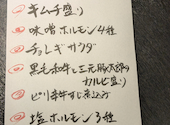 キムチ盛り
味噌ホルモン4種
チョレギサラダ
黒毛和牛と三元豚
カルビ盛り
ピリ辛牛すじ煮込み
塩ホルモン3種